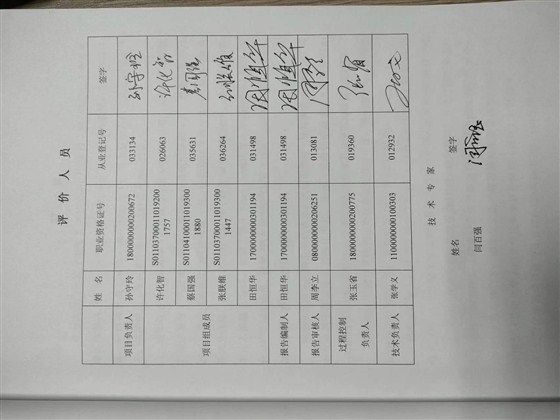 评 价 人 员
姓 名 职业资格证号 从业登记号 签字
项目负责人 孙守玲 1800000000200672 033134
项目组成员 许化智 S011037000110192001757 026063 许化智
蔡国强 S011041000110193001880 035631
张朕维 S011037000110193001447 036264
田恒华 1700000000301194 031498
报告编制人 田恒华 1700000000301194 031498
报告审核人 周李立 0800000000206251 013081
过程控制负责人 张玉省 1800000000200775 019360
技术负责人 张学文 1100000000100303 012932
技 术 专 家
姓名 签字
闫百强